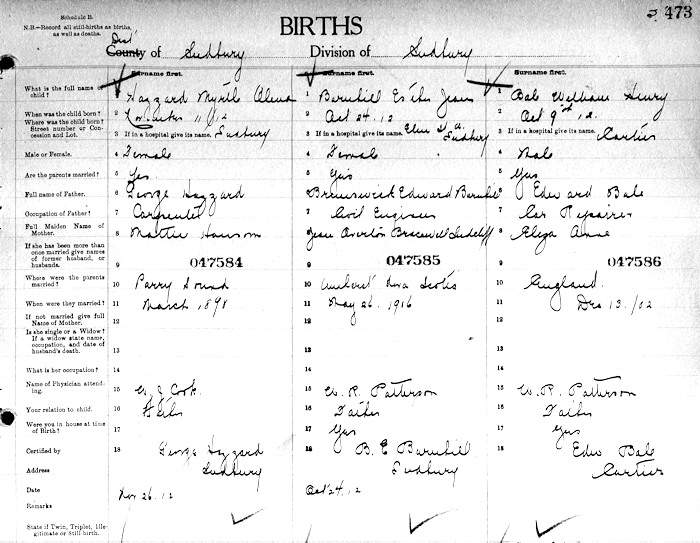 Schedule B.
N.B.—Record all still-births as births, as well as deaths.
BIRTHS
473
Dist
County of Sudbury Division of Sudbury
Surname first. Surname first. Surname first.
What is the full name of child? 1 Hazzard Myrtle 1 Barnhill Esther Jean 1 Bale William Henry
When was the child born? 2 November 11/12 2 Oct 24.12 2 Oct 9th 12.
Where was the child born? Street number or Concession and Lot. 3 If in a hospital give its name. Sudbury 3 If in a hospital give its name. Elm St Sudbury 3 If in a hospital give its name. Cartier
Male or Female. 4 Female 4 Female 4 Male
Are the parents married? 5 Yes 5 Yes 5 Yes
Full name of Father. 6 George Hazzard 6 Brunswick Edward Barnhill 6 Edward Bale
Occupation of Father? 7 Carpenter 7 Civil Engineer 7 Car Repairer
Full Maiden Name of Mother. 8 8 Jean Overton Bracewell Sutcliff 8 Eliza Anne
If she has been more than once married give names of former husband, or husbands. 9 047584 9 047585 9 047586
Where were the parents married? 10 Parry Sound 10 Amherst Nova Scotia 10 England.
When were they married? 11 March 1898 11 May 26. 1916 11 Dec 13./02
If not married give full Name of Mother. 12 12 12
Is she single or a Widow? If a widow state name, occupation, and date of husband's death. 13 13 13
What is her occupation? 14 14 14
Name of Physician attending. 15 Cook. 15 W. R. Patterson 15 W. R. Patterson
Your relation to child. 16 Father 16 Father 16 Father
Were you in house at time of Birth? 17 17 Yes 17 Yes
Certified by 18 George Hazzard 18 B. E Barnhill 18 Edw Bale
Address Sudbury Sudbury Cartier
Date Nov 26.12 Oct 24.12
Remarks
State if Twin, Triplet, Illegitimate or Still-birth.